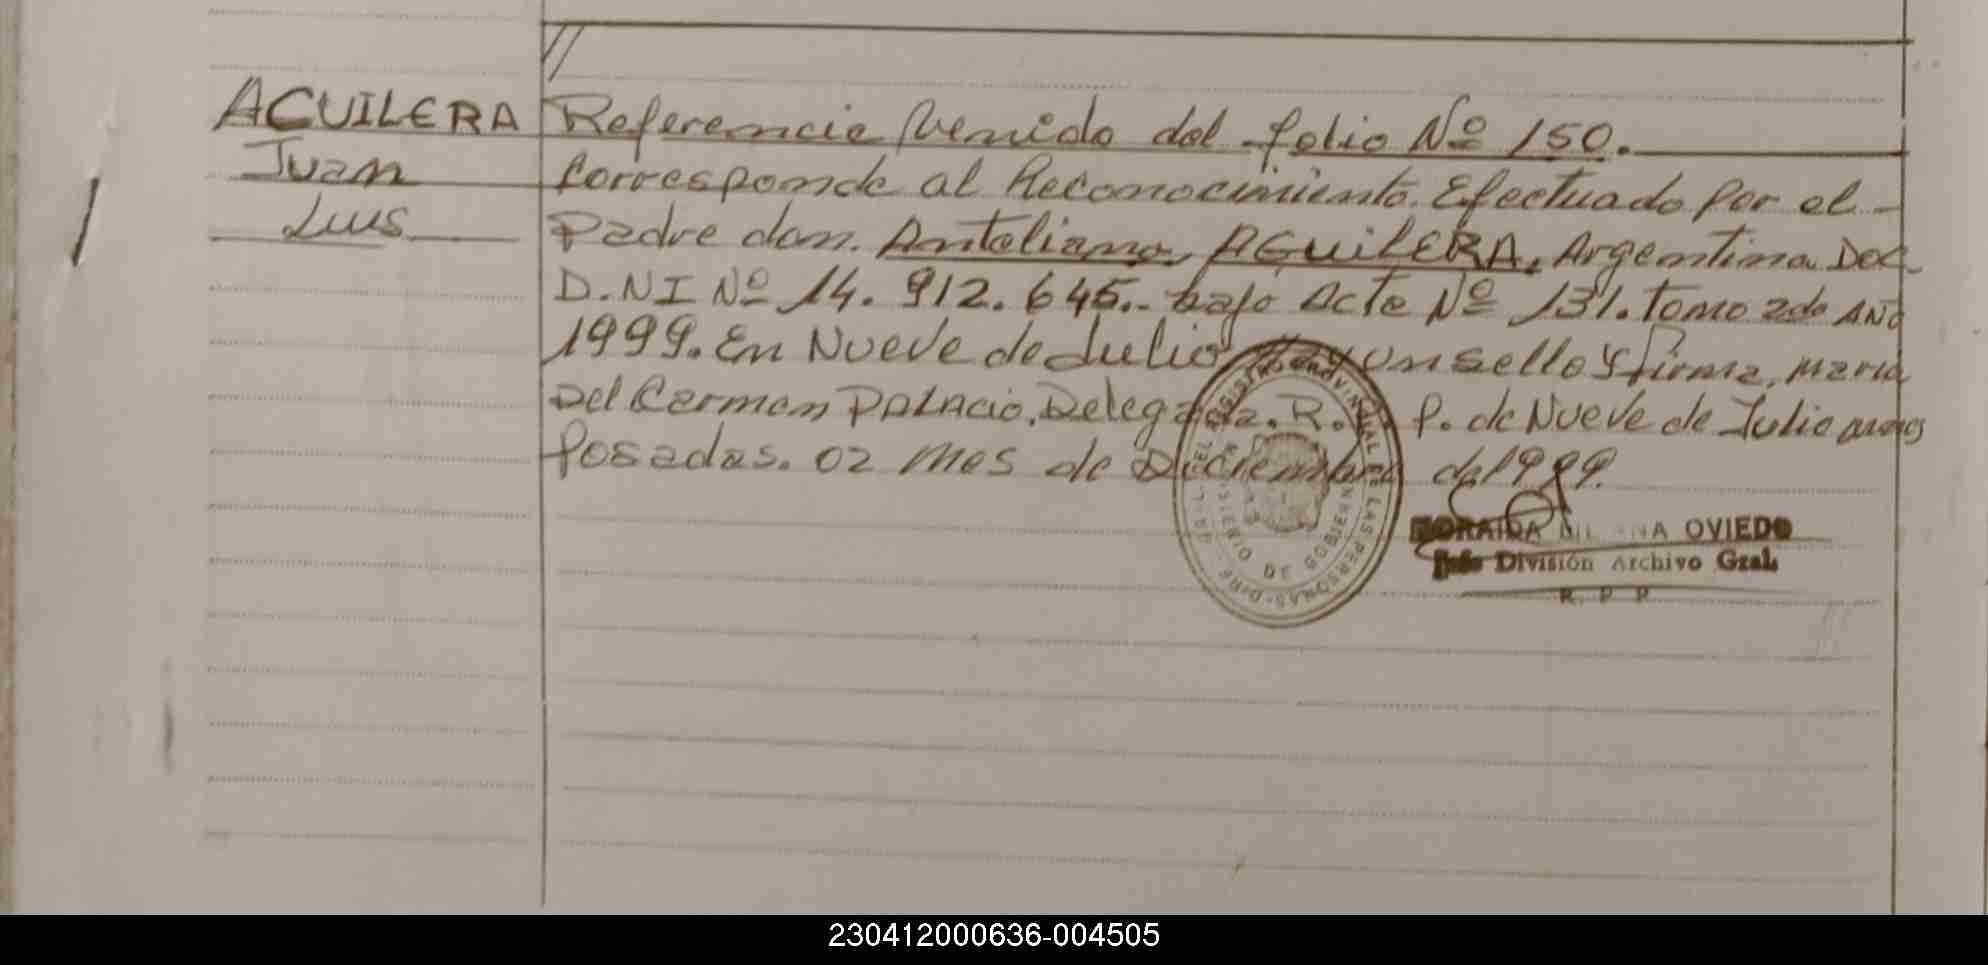 //
AGUILERA Referencia Venido del folio Nº 150.
Juan Corresponde al Reconocimiento. Efectuado por el
Luis Padre don. Antoliano AGUILERA, Argentino. Doc
D.NI Nº 14.912.645.- bajo Acta Nº 131. Tomo 2do AÑO
1999. En Nueve de Julio Hay un sello y firma, Maria
Del Carmen Palacio. Delegada. R. P. de Nueve de Julio
Posadas. 02 Mes de Diciembre del 1999.
OVIEDO
Jefe División Archivo Gral.
R. P. P.
REGISTRO PROVINCIAL DE LAS PERSONAS
MINISTERIO DE GOBIERNO
230412000636-004505